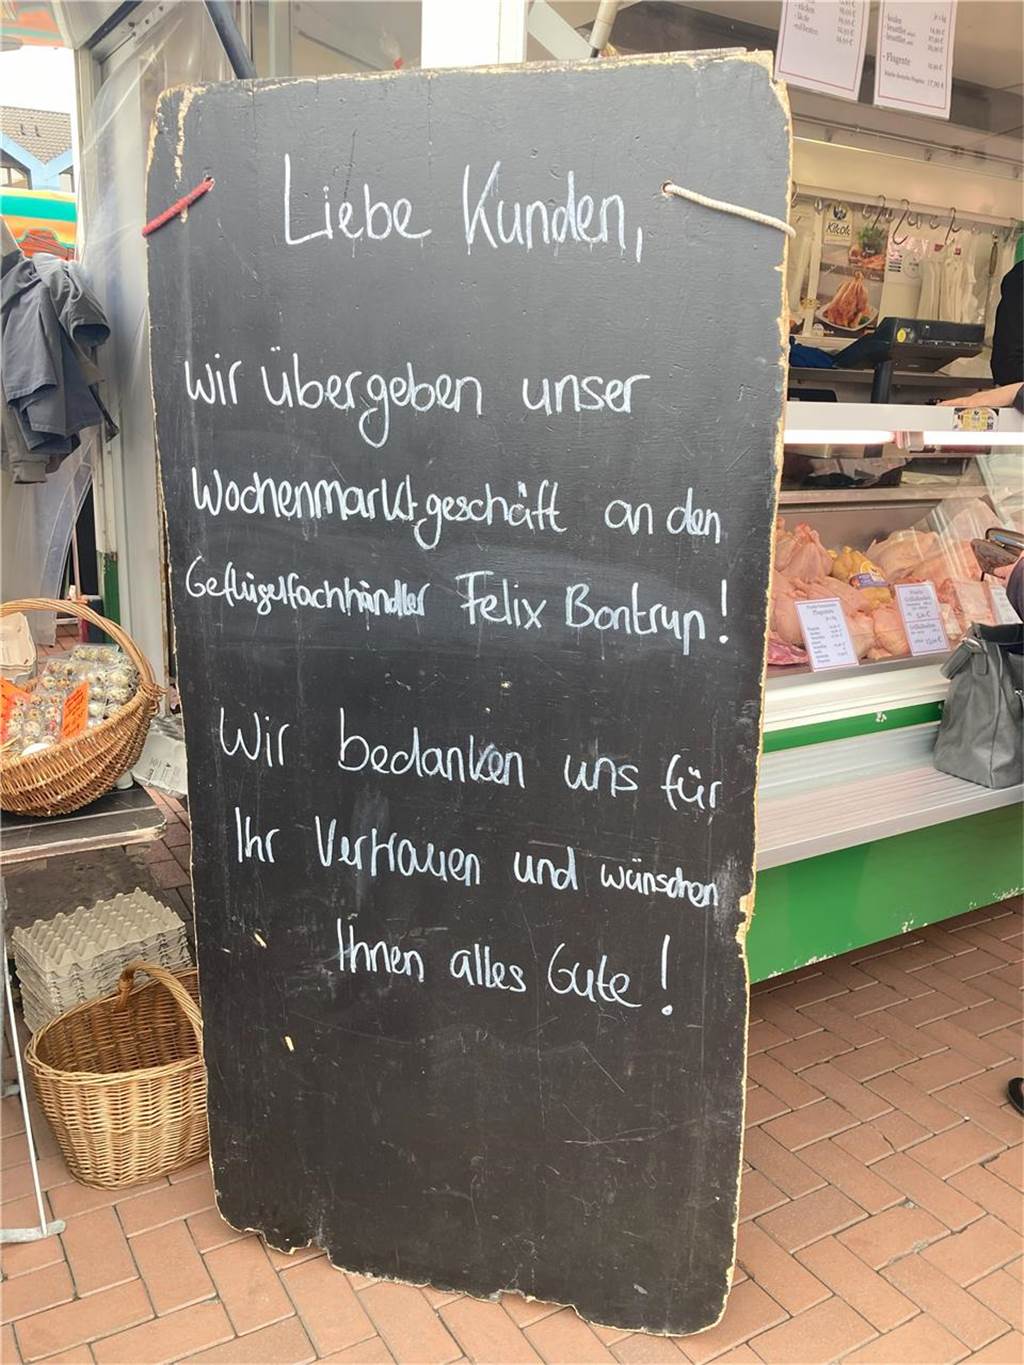 Liebe Kunden,
wir übergeben unser
Wochenmarktgeschäft an den
Geflügelfachhändler Felix Bontrup!
Wir bedanken uns für
Ihr Vertrauen und wünschen
Ihnen alles Gute!
- Flugente